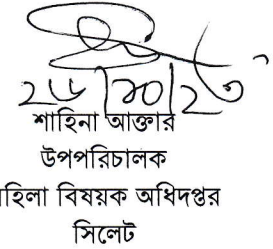 ২৬/১০/২৩
শাহিনা আক্তার
উপপরিচালক
মহিলা বিষয়ক অধিদপ্তর
সিলেট